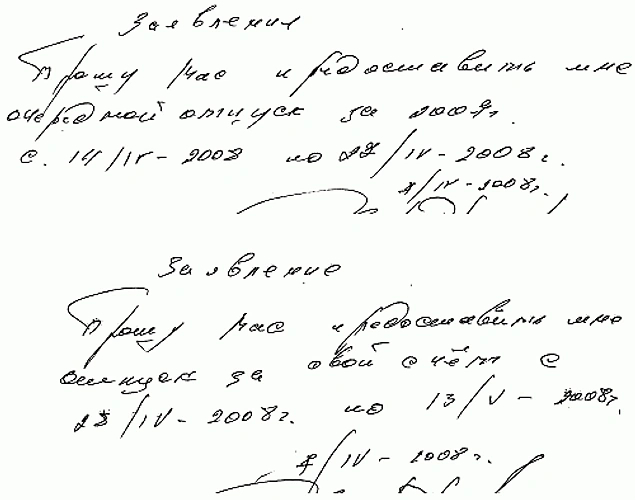 Заявления
Прошу Вас предоставить мне
очередной отпуск за 2007г.
с. 14/IV-2008 по 27/IV-2008г.
7/IV-2008г.
Заявление
Прошу Вас предоставить мне
отпуск за свой счёт с
28/IV-2008г. по 13/V-2008г.
7/IV-2008г.